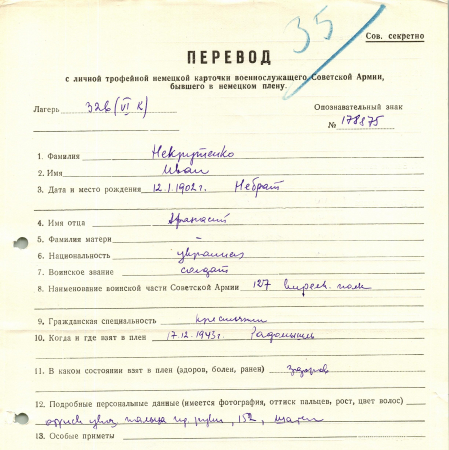 35
Сов. секретно
ПЕРЕВОД
с личной трофейной немецкой карточки военнослужащего Советской Армии,
бывшего в немецком плену.
Лагерь 326 (VI К) Опознавательный знак
№ 178875
1. Фамилия Некрутенко
2. Имя Иван
3. Дата и место рождения 12.1.1902г. Небрат
4. Имя отца Афанасий
5. Фамилия матери –
6. Национальность украинец
7. Воинское звание солдат
8. Наименование воинской части Советской Армии 127 полк
9. Гражданская специальность крестьянин
10. Когда и где взят в плен 17.12.1943г. Радомышль
11. В каком состоянии взят в плен (здоров, болен, ранен) здоров
12. Подробные персональные данные (имеется фотография, оттиск пальцев, рост, цвет волос)
оттиск указ. пальца пр. руки,
13. Особые приметы